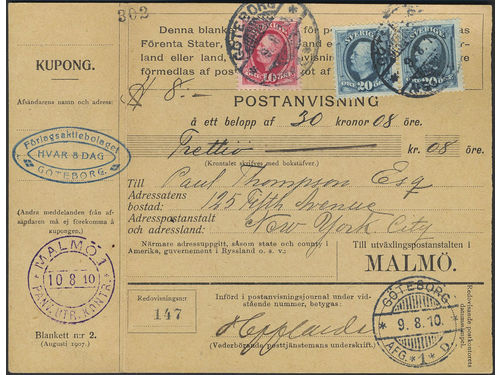 302
Denna blan
Förenta Stater,
land eller land,
förmedlas af pos t af koi
KUPONG.
Afsändarens namn och adress:
Förlagsaktiebolaget
HVAR 8 DAG
GÖTEBORG.
(Andra meddelanden från af-
sändaren må ej förekomma å
kupongen.)
MALMÖ 1
10 8 10
Blankett n:r 2.
(Augusti 1907.)
GÖTEBORG
SVERIGE
10
SVERIGE
20
20
$ 8.-
POSTANVISNING
å ett belopp af 30 kronor 08 öre.
Trettio kr. 08 öre.
(Krontalet skrifves med bokstäfver.)
Till Paul Thompson Esq
Adressatens bostad: 125 Fifth Avenue
Adresspostanstalt och adressland: New York City
Närmare adressuppgift, såsom state och county i
Amerika, guvernement i Ryssland o. s. v.:
Till utväxlingspostanstalten i
MALMÖ.
Redovisningsn:r
147
Införd i postanvisningsjournal under vid-
stående nummer, betygas:
(Vederbörande posttjänstemans underskrift.)
GÖTEBORG
9. 8. 10.
AFG. 1 D.
Redovisande postkontors
dammstempel.